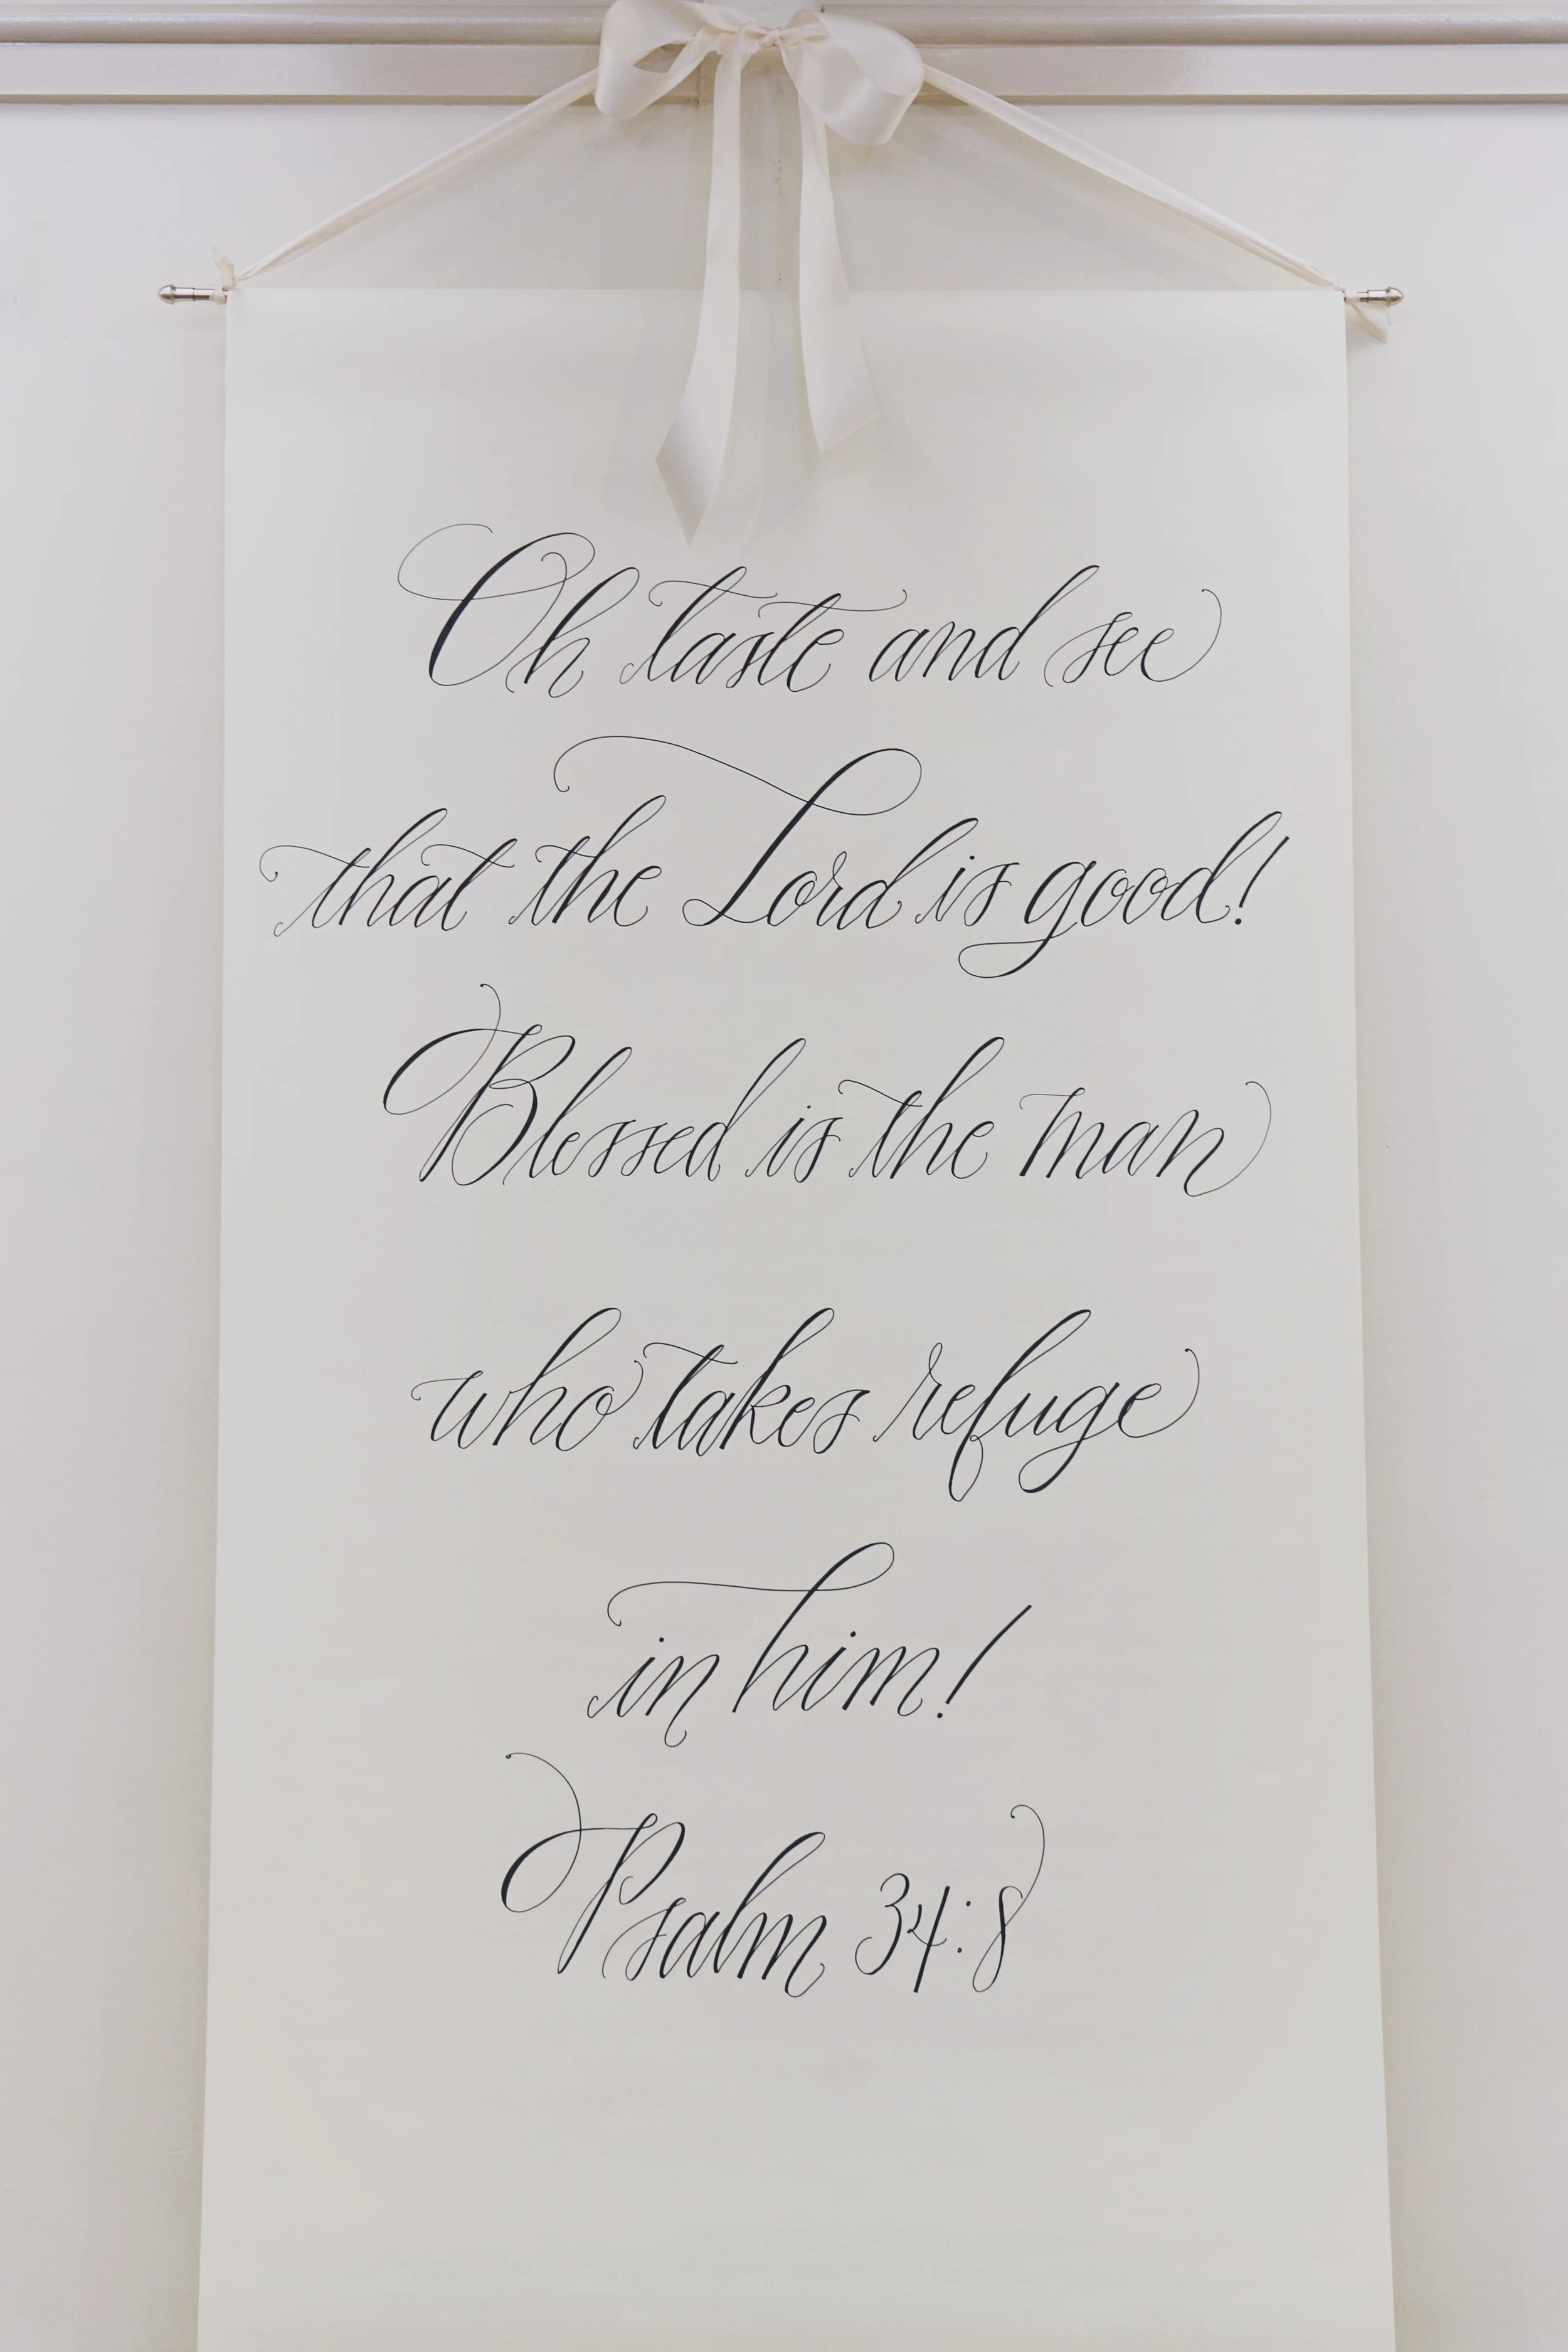 Oh taste and see
that the Lord is good!
Blessed is the man
who takes refuge
in him!
Psalm 34:8